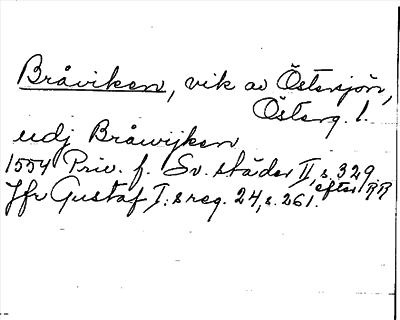 Bråviken, vik av Östersjön,
Österg. l.
udj Bråwijken
1554 Priv. f. Sv. städer II, s. 329 efter RR
Jfr Gustaf I:s reg. 24, s. 261.